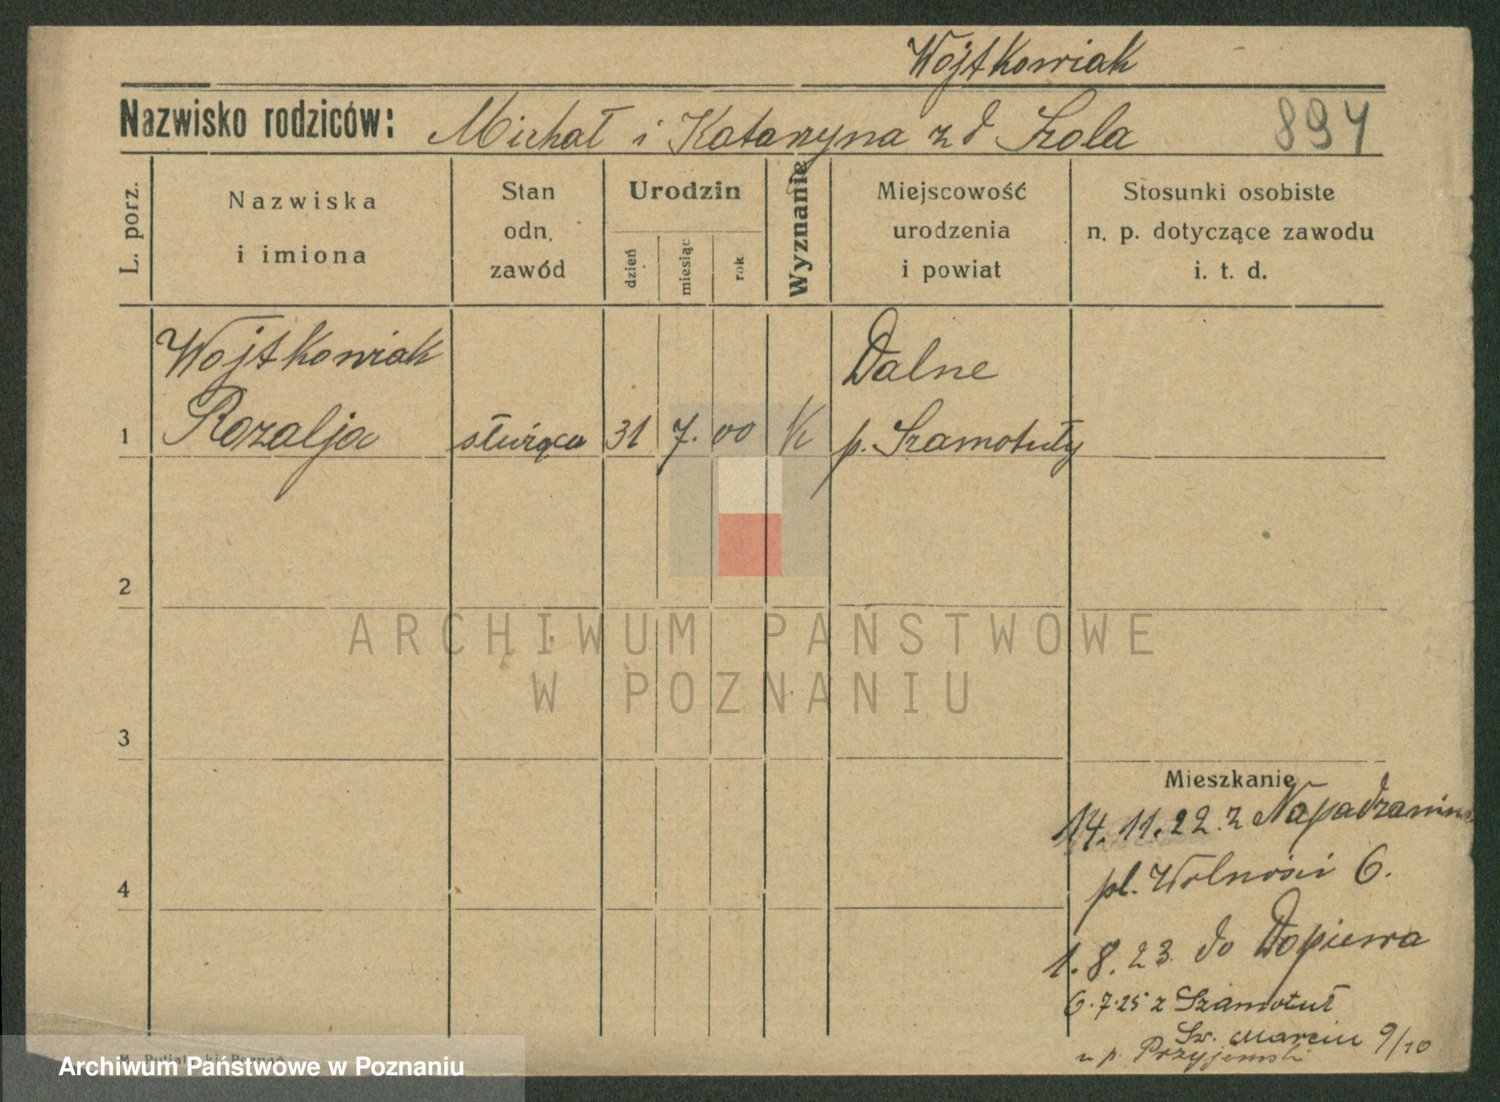 Wojtkowiak
Nazwisko rodziców: Michał i Katarzyna z d Szola 894
L. porz.
Nazwiska
i imiona
Stan
odn.
zawód
Urodzin
dzień
miesiąc
rok
Wyznanie
Miejscowość
urodzenia
i powiat
Stosunki osobiste
n. p. dotyczące zawodu
i. t. d.
Wojtkowiak Dalne
1 Rozalja służąca 31 7. 00 K p. Szamotuły
2
ARCHIWUM PAŃSTWOWE
W POZNANIU
3
Mieszkanie
14. 11. 22. z Napadzanina
4
pl. Wolności 6.
1. 8. 23 do Dopiewa
6. 7. 25 z Szamotuł
Św. Marcin 9/10
u p. Przyjemski
Archiwum Państwowe w Poznaniu